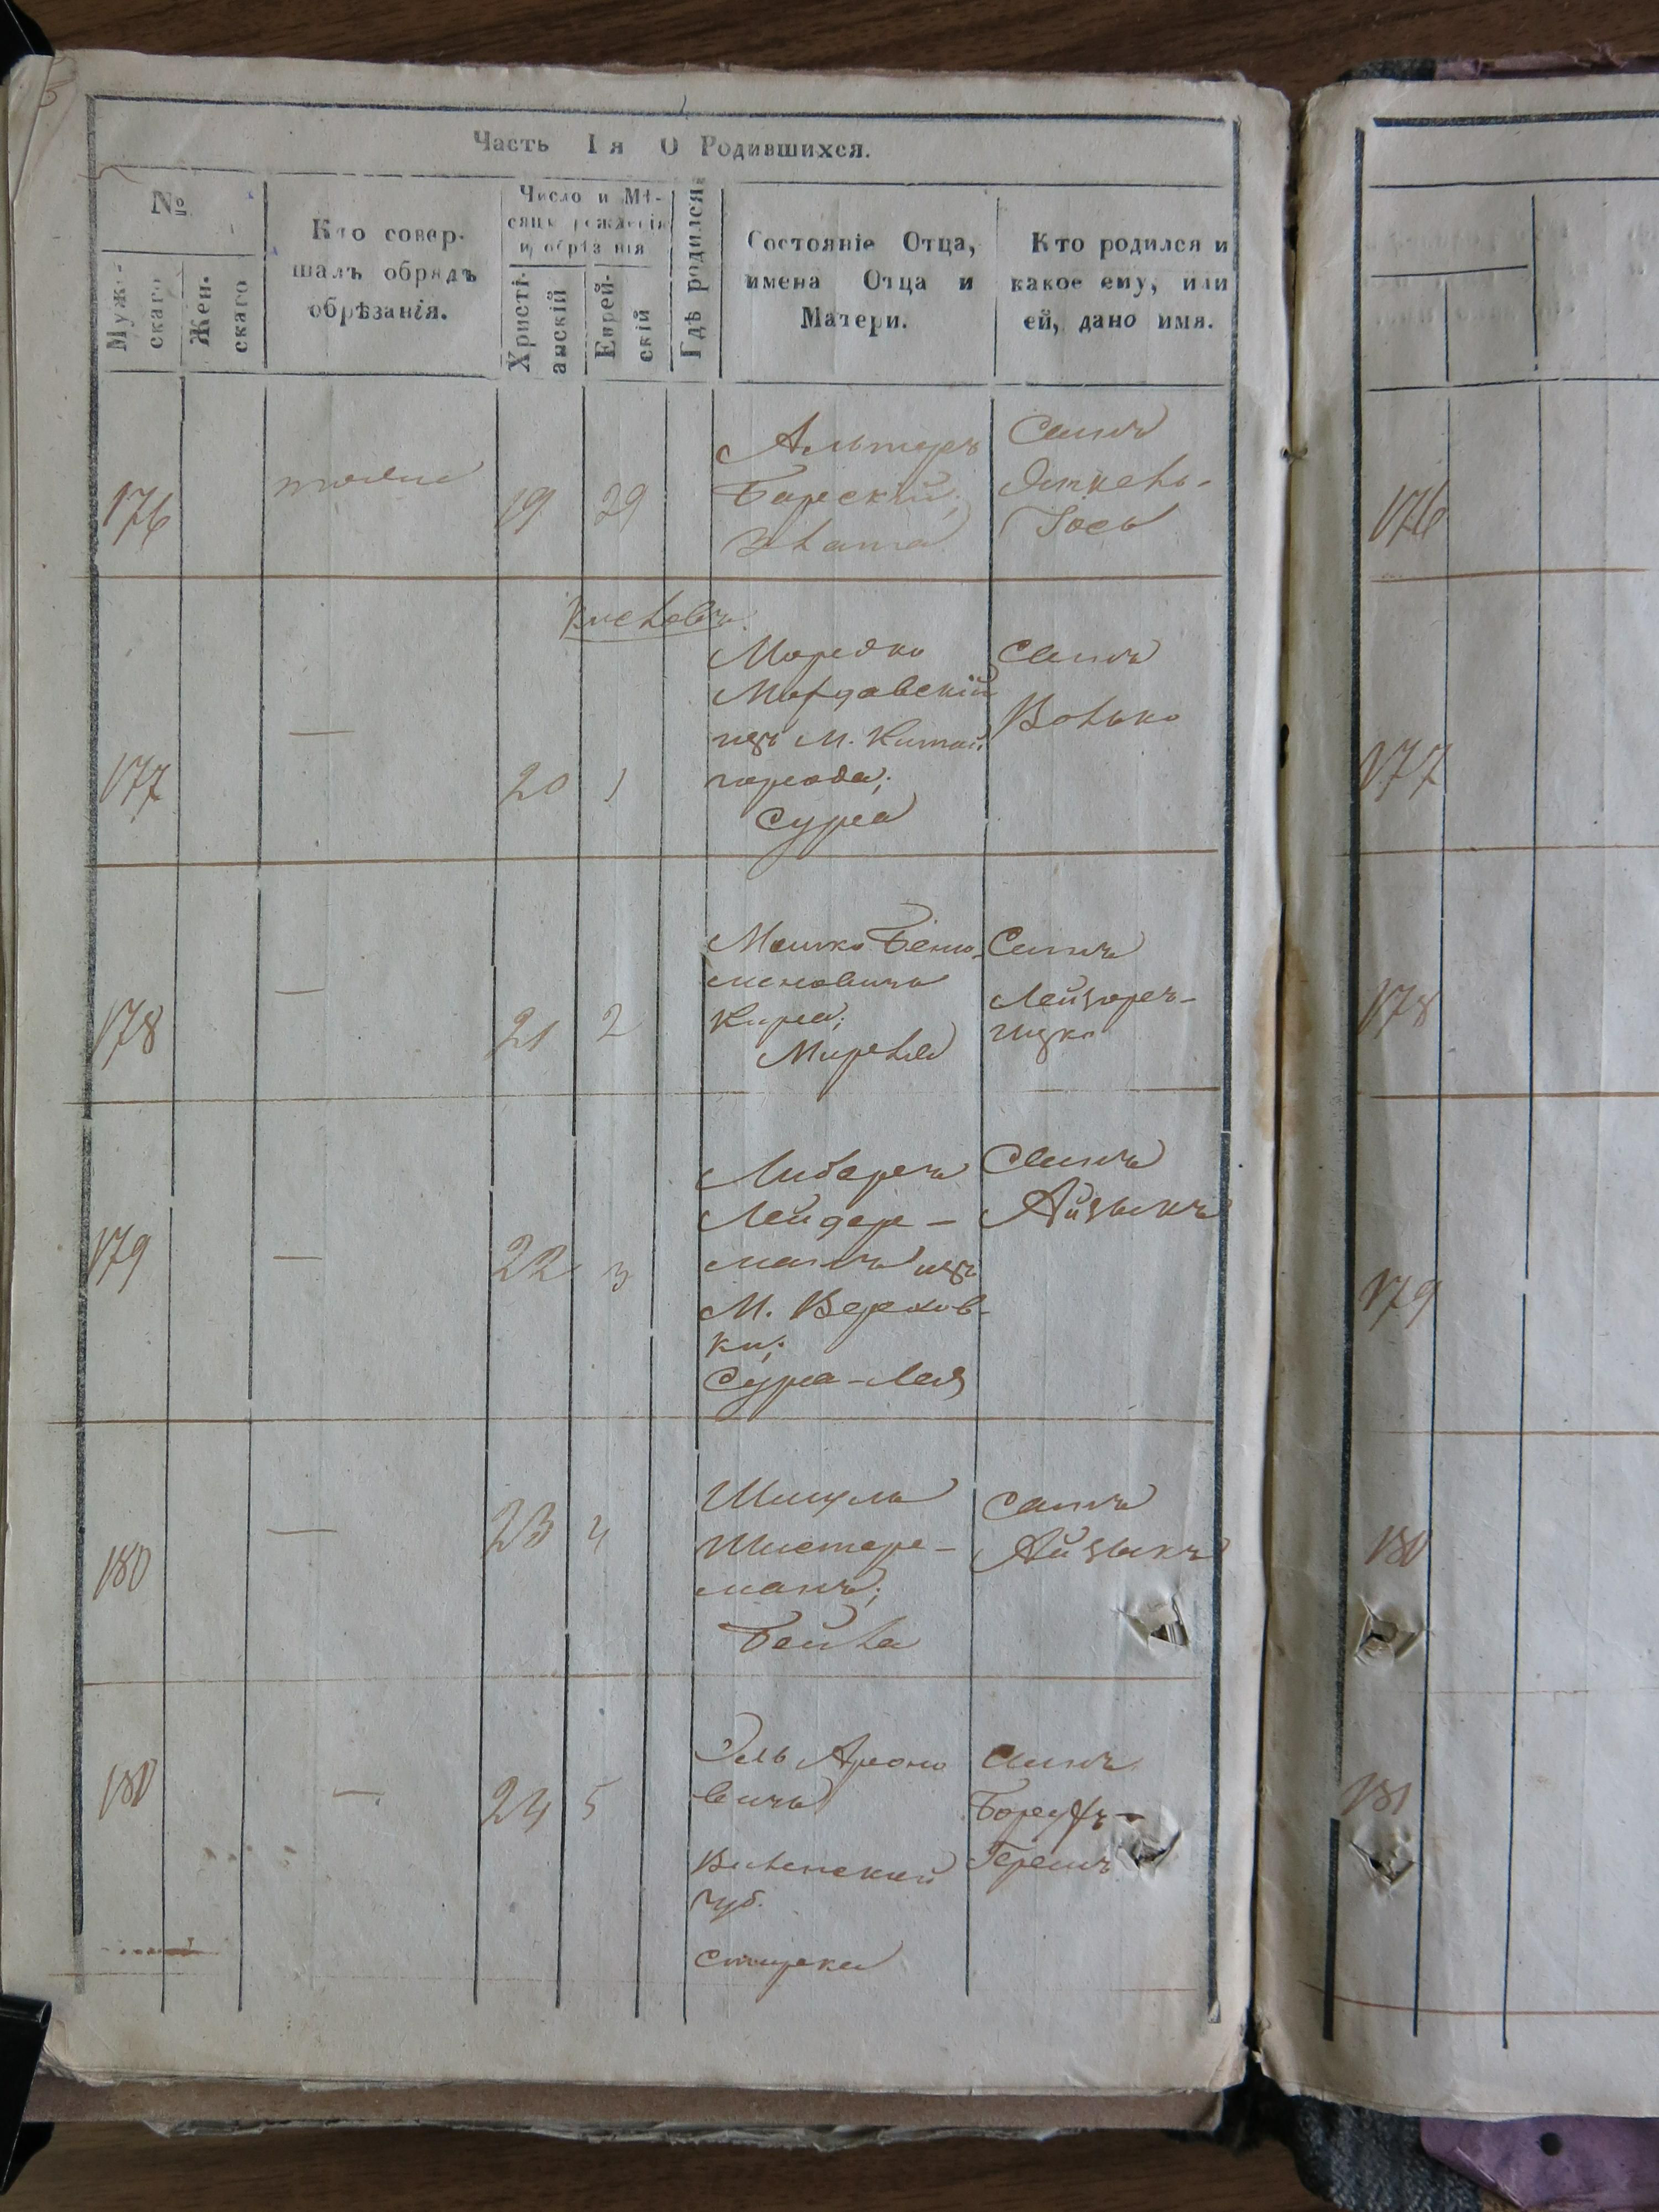 Часть I я О Родившихся.
№
Муж-
скаго
Жен-
скаго
Кто совер-
шалъ обрядъ
обрѣзанія.
Число и Мѣ-
сяцъ рожденія
и обрѣзанія
Христі-
анскій
Еврей-
скій
Гдѣ родился
Состояніе Отца,
имена Отца и
Матери.
Кто родился и
какое ему, или
ей, дано имя.
176
тоже
19
29
Альтеръ
Барскій;
Злата
Сынъ
Янкель-
Іось
176
Кислевъ.
177
—
20
1
Мордко
изъ М. Китай
города;
Сура
Сынъ
Волько
177
178
—
21
2
Мошко Беню-
миновичъ
Кира;
Мирля
Сынъ
Лейзоръ-
Ицко
178
179
—
22
3
Либеръ
Лейдер-
манъ изъ
М. Верхов-
ки;
Сура-Лея
Сынъ
Айзыкъ
179
180
—
23
4
Шмуль
Шистер-
манъ;
Бейла
Сынъ
Айзыкъ
180
180
—
24
5
Эль Ароно
вичъ
Виленской
губ.
Сынъ
Борухъ-
Гершъ
181